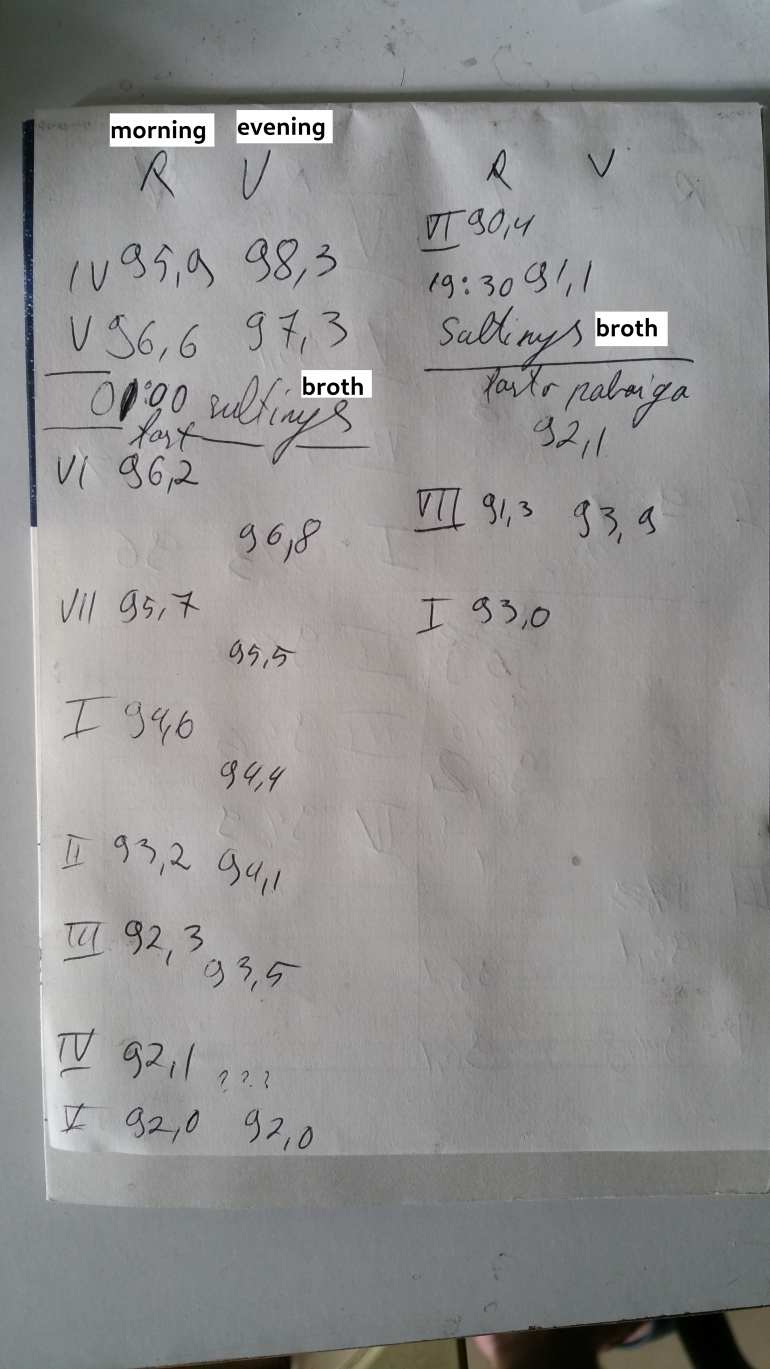 morning evening
R V
IV 95,9 98,3
V 96,6 97,3
01:00 sultinys broth
fast
VI 96,2
96,8
VII 95,7
95,5
I 94,6
94,4
II 93,2 94,1
III 92,3
93,5
IV 92,1 ???
V 92,0 92,0
R V
VI 90,4
19:30 91,1
Sultinys broth
pabaiga
92,1
VII 91,3 93,9
I 93,0